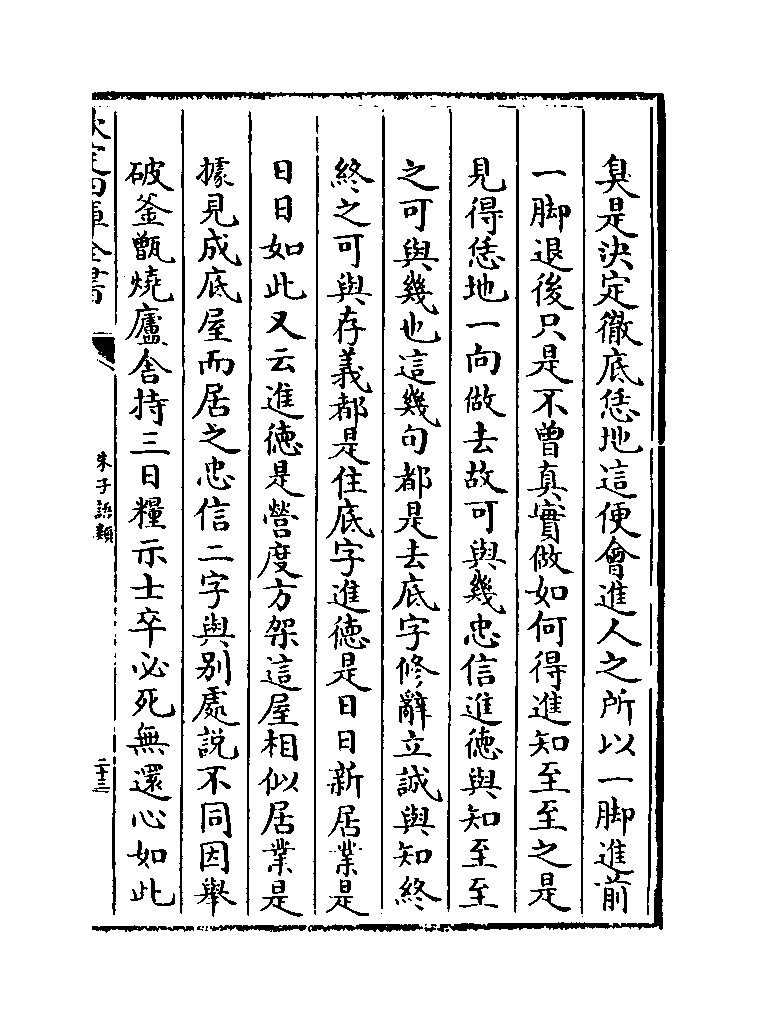 臭是決定徹底恁地這便會進人之所以一脚進前
一脚退後只是不曽真實做如何得進知至至之是
見得恁地一向做去故可與幾忠信進徳與知至至
之可與幾也這幾句都是去底字修辭立誠與知終
終之可與存義都是住底字進徳是日日新居業是
日日如此又云進徳是營度方架這屋相似居業是
據見成底屋而居之忠信二字與别處說不同因舉
破釜甑燒廬舍持三日糧示士卒必死無還心如此
欽定四庫全書
朱子語類
二十三